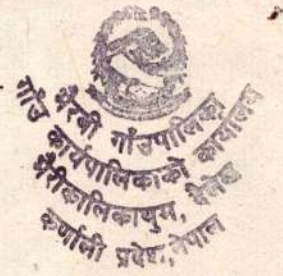 भैरवी गाँउपालिका
गाँउ कार्यपालिकाको कार्यालय
भैरीकालिकाथुम, दैलेख
कर्णाली प्रदेश, नेपाल